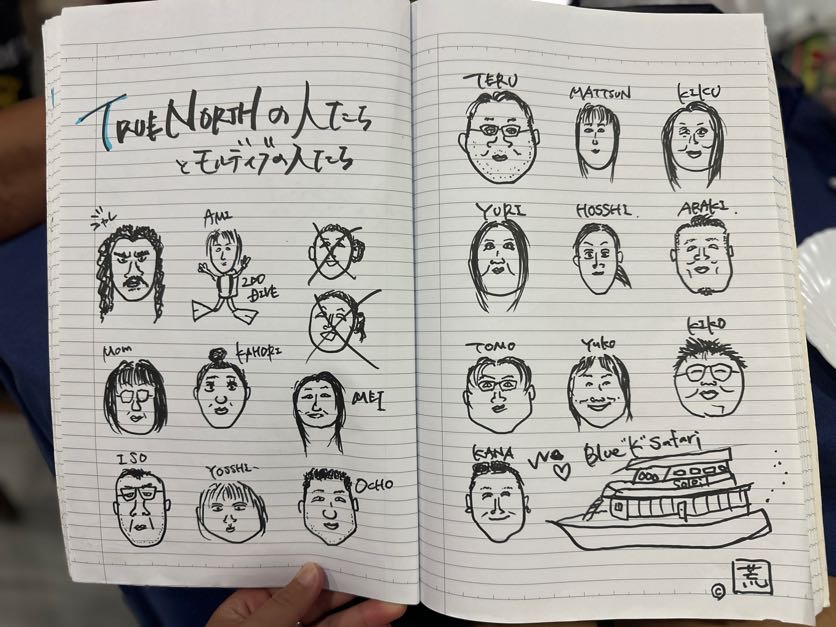 TRUE NORTHの人たち
とモルディブの人たち
ジャレ
AMI
200
DIVE
MOM
KAHORI
MEI
ISO
YOSSHI-
OCHO
TERU
MATTSUN
KIKU
YURI
HOSSHI.
ARAKI.
TOMO
Yuko
KIKO
KANA
We ♡ Blue "K" Safari
Safari
© 荒